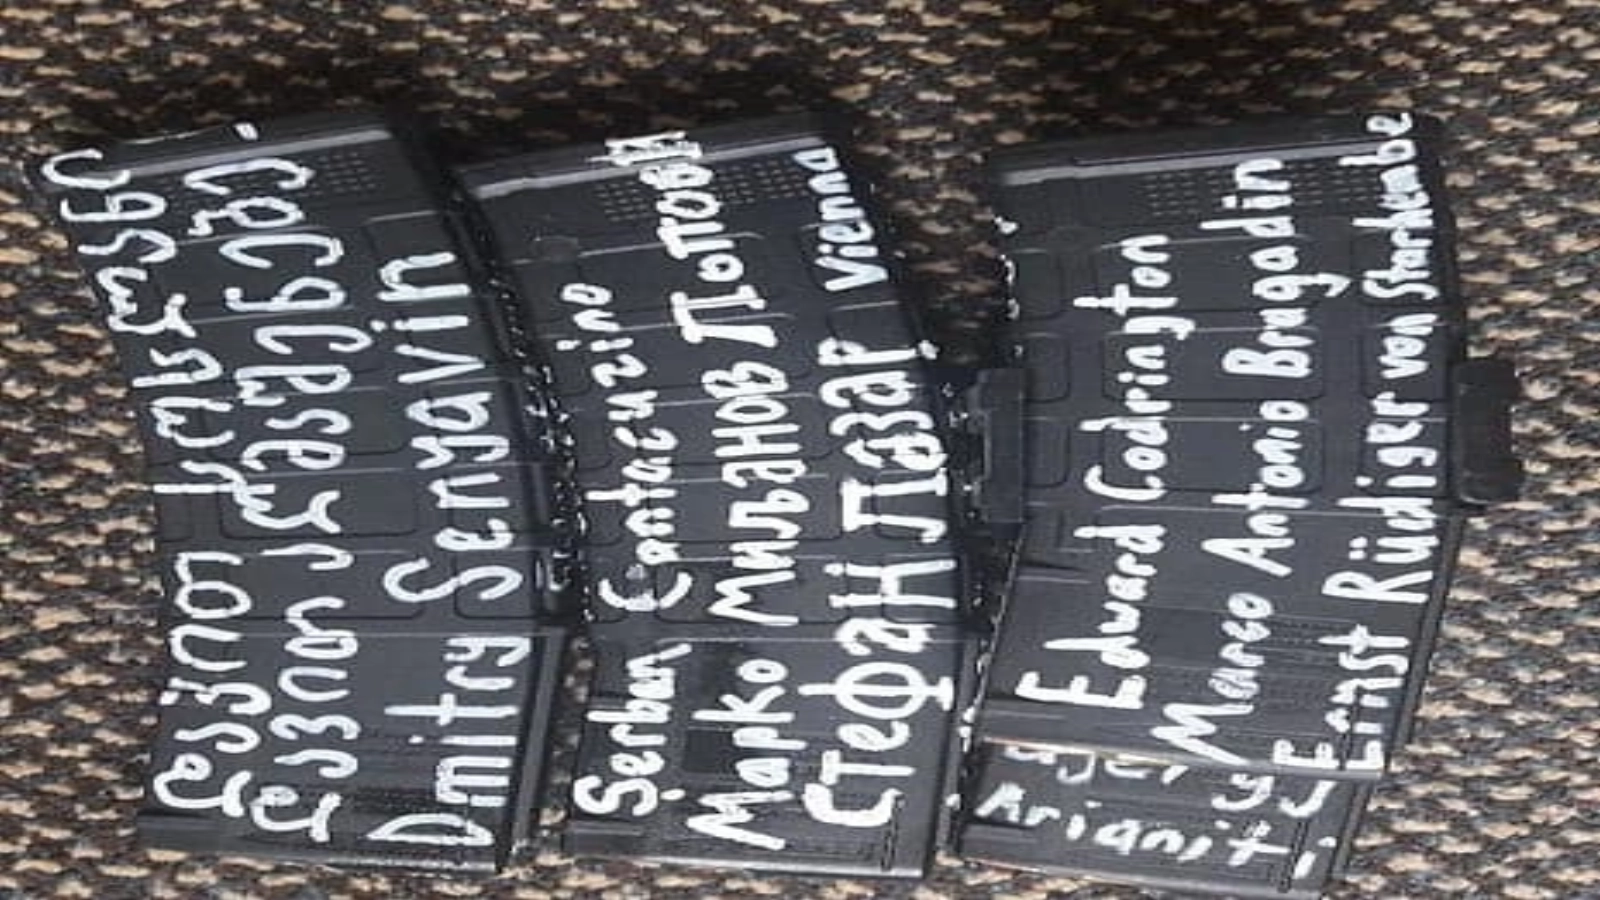 დავით
დავით აღმაშენებელი
Dmitry Senyavin
Șerban Cantacuzino
Марко Миљанов Поповић
СТефаН Лазар Vienna
Edward Codrington
Marco Antonio Bragadin
Ernst Rüdiger von Starhembe
Arianiti